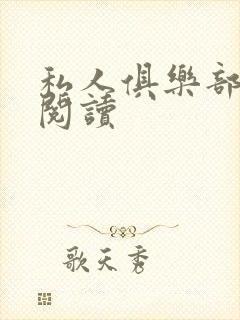 私人俱樂部
閱讀
歌天秀